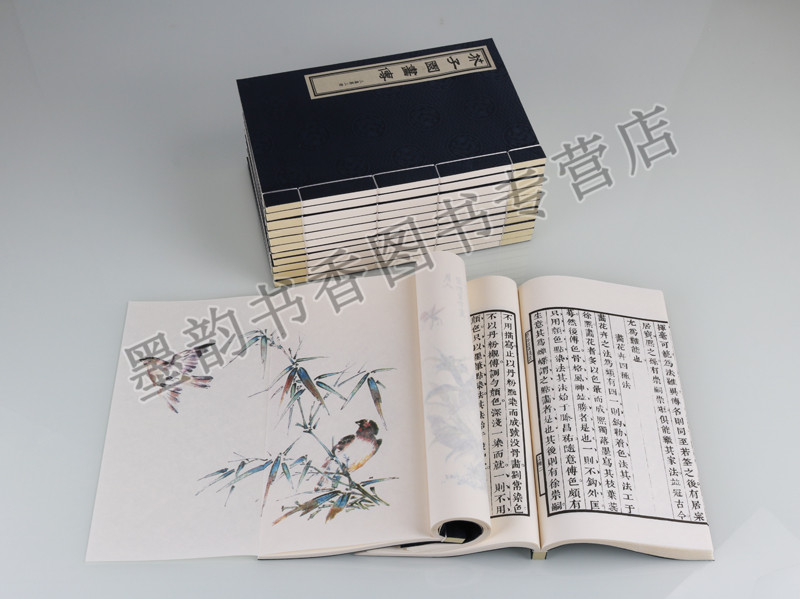 芥子園畫傳
墨韵书香图书专营店
揮毫可號爲法雖與傳名則同至若荃之後有居寀
居寶熙之後有崇嗣崇矩俱能繼其家法並冠古今
尤爲難能也
畫花卉四種法
畫花卉之法爲類有四一則鈎勒着色法其法工于
徐熙畫花者多以色暈而成熙獨落墨寫其枝葉蕊
萼然後傅色骨格風神竝勝者是也一則不鈎外匡
只用顏色點染法其法始于滕昌祐隨意傅色頗有
生意其爲蟬蝶謂之點畫者是也其後則有徐崇嗣
不用描寫止以丹粉點染而成號沒骨畫劉常染色
不以丹粉襯傅調勻顏色深淺一染而就一則不用
顏色只以墨筆點染法其法始